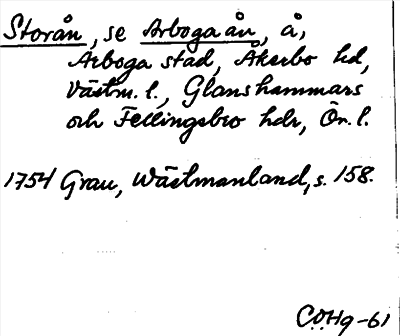 Storån, se Arbogaån, å,
Arboga stad, Åkerbo hd,
Västm. l., Glanshammars
och Fellingsbro hdr, Ör. l.
1754 Grau, Wästmanland, s. 158.
C.O.Hg-61